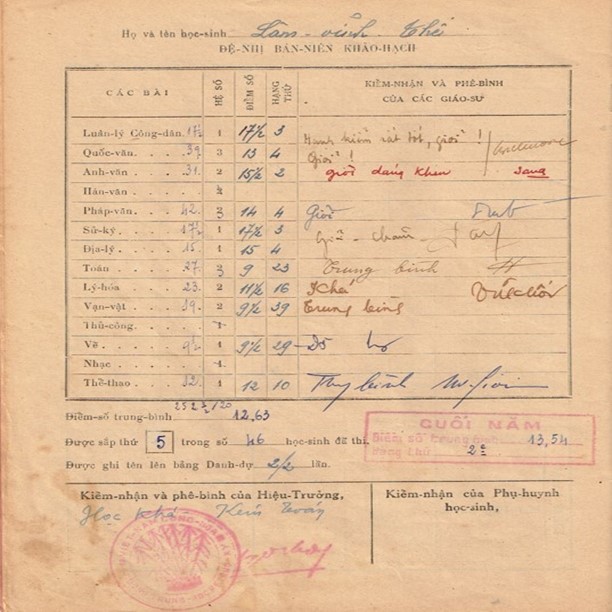 Họ và tên học-sinh Lâm-vĩnh-Thế
ĐỆ-NHỊ BÁN-NIÊN KHẢO-HẠCH
CÁC BÀI HỆ SỐ ĐIỂM SỐ HẠNG THỨ KIỂM-NHẬN VÀ PHÊ-BÌNH CỦA CÁC GIÁO-SƯ
Luân-lý Công-dân. 17½ 1 17½ 3 Hạnh kiểm rất tốt, giỏi!
Quốc-văn. . . . 39 3 13 4 Giỏi!
Anh-văn . . . . 31. 2 15½ 2 giỏi đáng khen
Hán-văn . . . . 2
Pháp-văn . . . . 42. 3 14 4 Giỏi
Sử-ký. . . . . 17½ 1 17½ 3 Giỏi - chăm -
Địa-lý . . . . . 15. 1 15 4
Toán . . . . . 27. 3 9 23 Trung bình
Lý-hóa . . . . 23. 2 11½ 16 Khá
Vạn-vật . . . . 19. 2 9½ 39 Trung bình
Thủ-công. . . . 1
Vẽ . . . . . 9½ 1 9½ 29
Nhạc . . . . . 1
Thể-thao . . . . 12. 1 12 10
252½/20
Điểm-số trung-bình 12,63
Được sắp thứ 5 trong số 46 học-sinh đã thi.
Được ghi tên lên bảng Danh-dự 2/2 lần.
CUỐI NĂM
Điểm số trung bình 13,54
Hạng thứ 2e
Kiểm-nhận và phê-bình của Hiệu-Trưởng,
Học khá - Kém toán
Kiểm-nhận của Phụ-huynh
học-sinh,